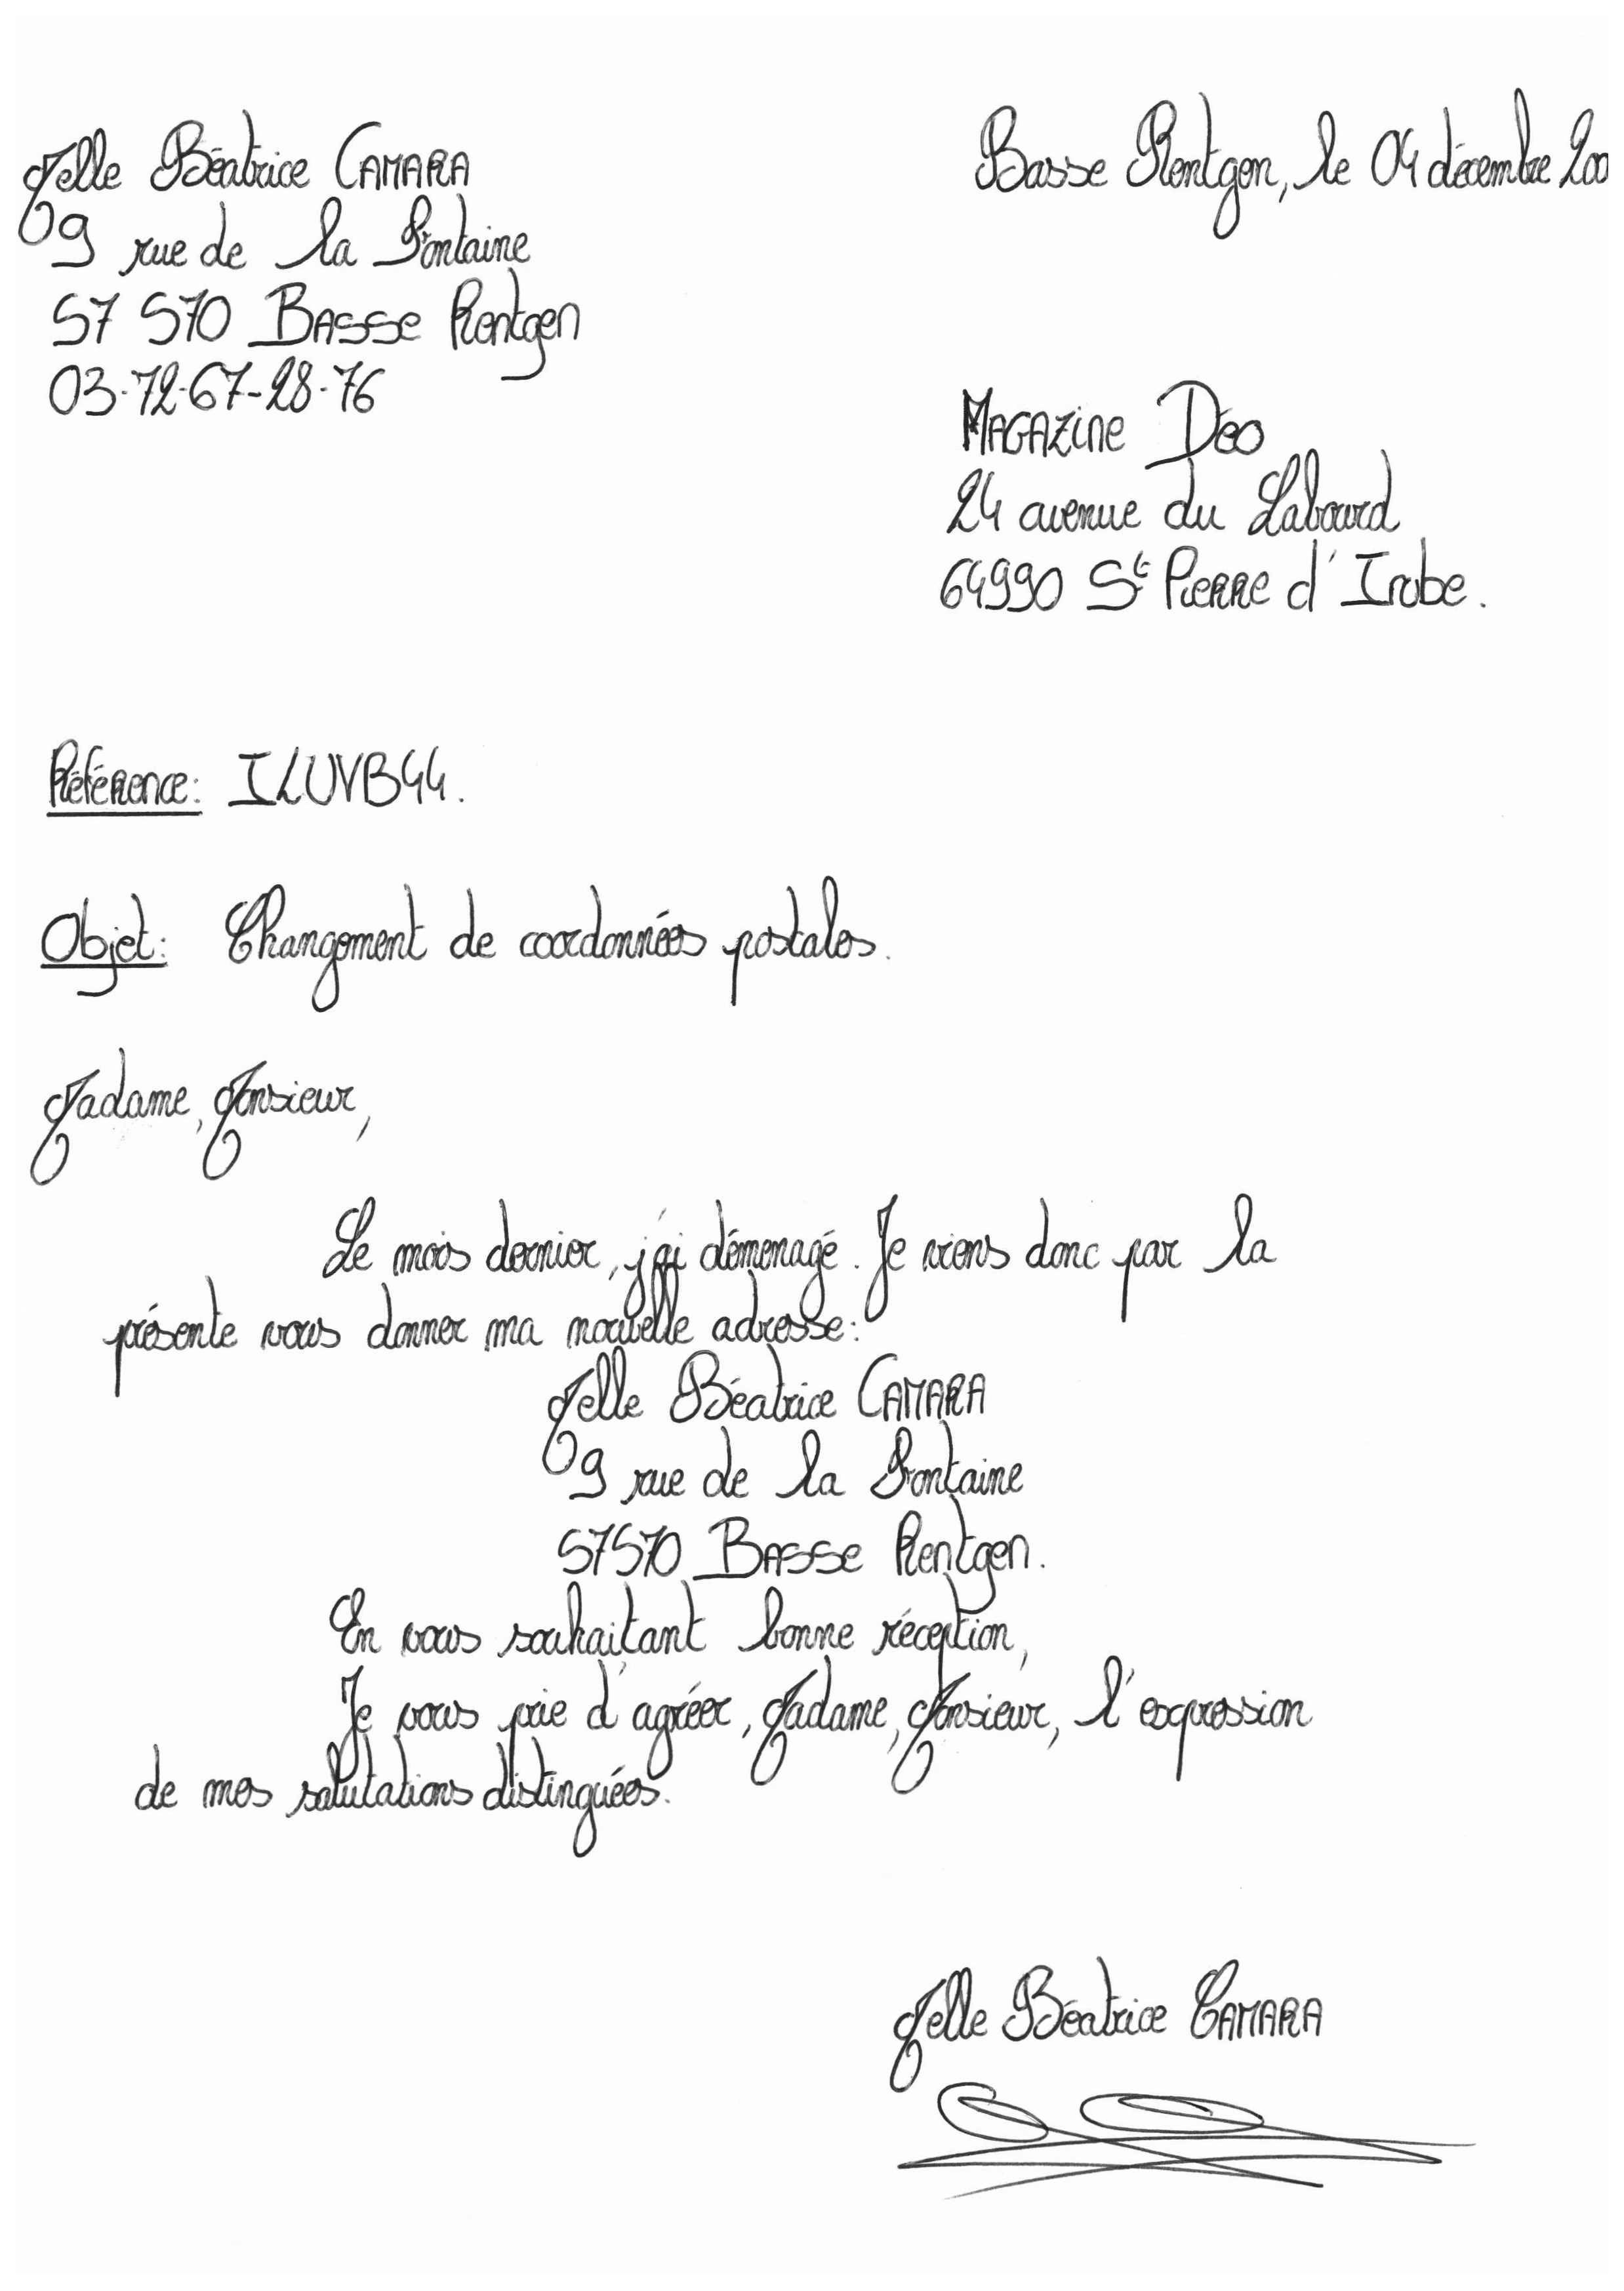 Melle Béatrice CAMARA
9 rue de la Fontaine
57 570 BASSE Rentgen
03-72-67-28-76
Basse Rentgen, le 04 décembre 200
MAGAZINE Déo
24 avenue du Labourd
64990 St PIERRE d'Irube.
Référence: ILUVB44.
Objet: Changement de coordonnées postales.
Madame, Monsieur,
Le mois dernier, j'ai déménagé. Je viens donc par la
présente vous donner ma nouvelle adresse:
Melle Béatrice CAMARA
9 rue de la Fontaine
57570 BASSE Rentgen.
En vous souhaitant bonne réception,
Je vous prie d'agréer, Madame, Monsieur, l'expression
de mes salutations distinguées.
Melle Béatrice CAMARA